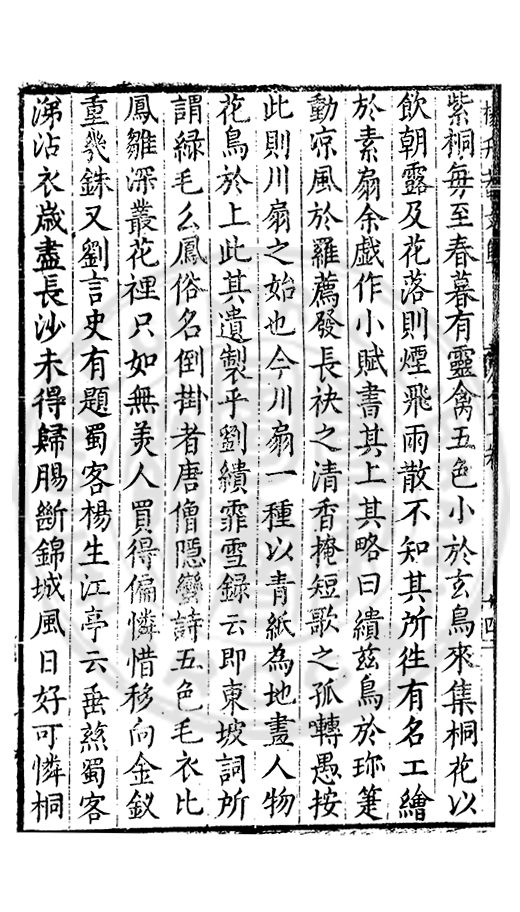 紫桐每至春暮有靈禽五色小於玄鳥來集桐花以
飲朝露及花落則煙飛雨散不知其所往有名工繪
於素扇余戲作小賦書其上其略曰繢茲鳥於珎箑
動凉風於羅薦發長袂之清香掩短歌之孤囀愚按
此則川扇之始也今川扇一種以青紙為地畫人物
花鳥於上此其遺製乎劉績霏雪録云即東坡詞所
謂緑毛幺鳳俗名倒掛者唐僧隱巒詩五色毛衣比
鳳雛深叢花裡只如無美人買得偏憐惜移向金釵
重幾銖又劉言史有題蜀客楊生江亭云垂㷀蜀客
涕沾衣歲盡長沙未得歸腸斷錦城風日好可憐桐